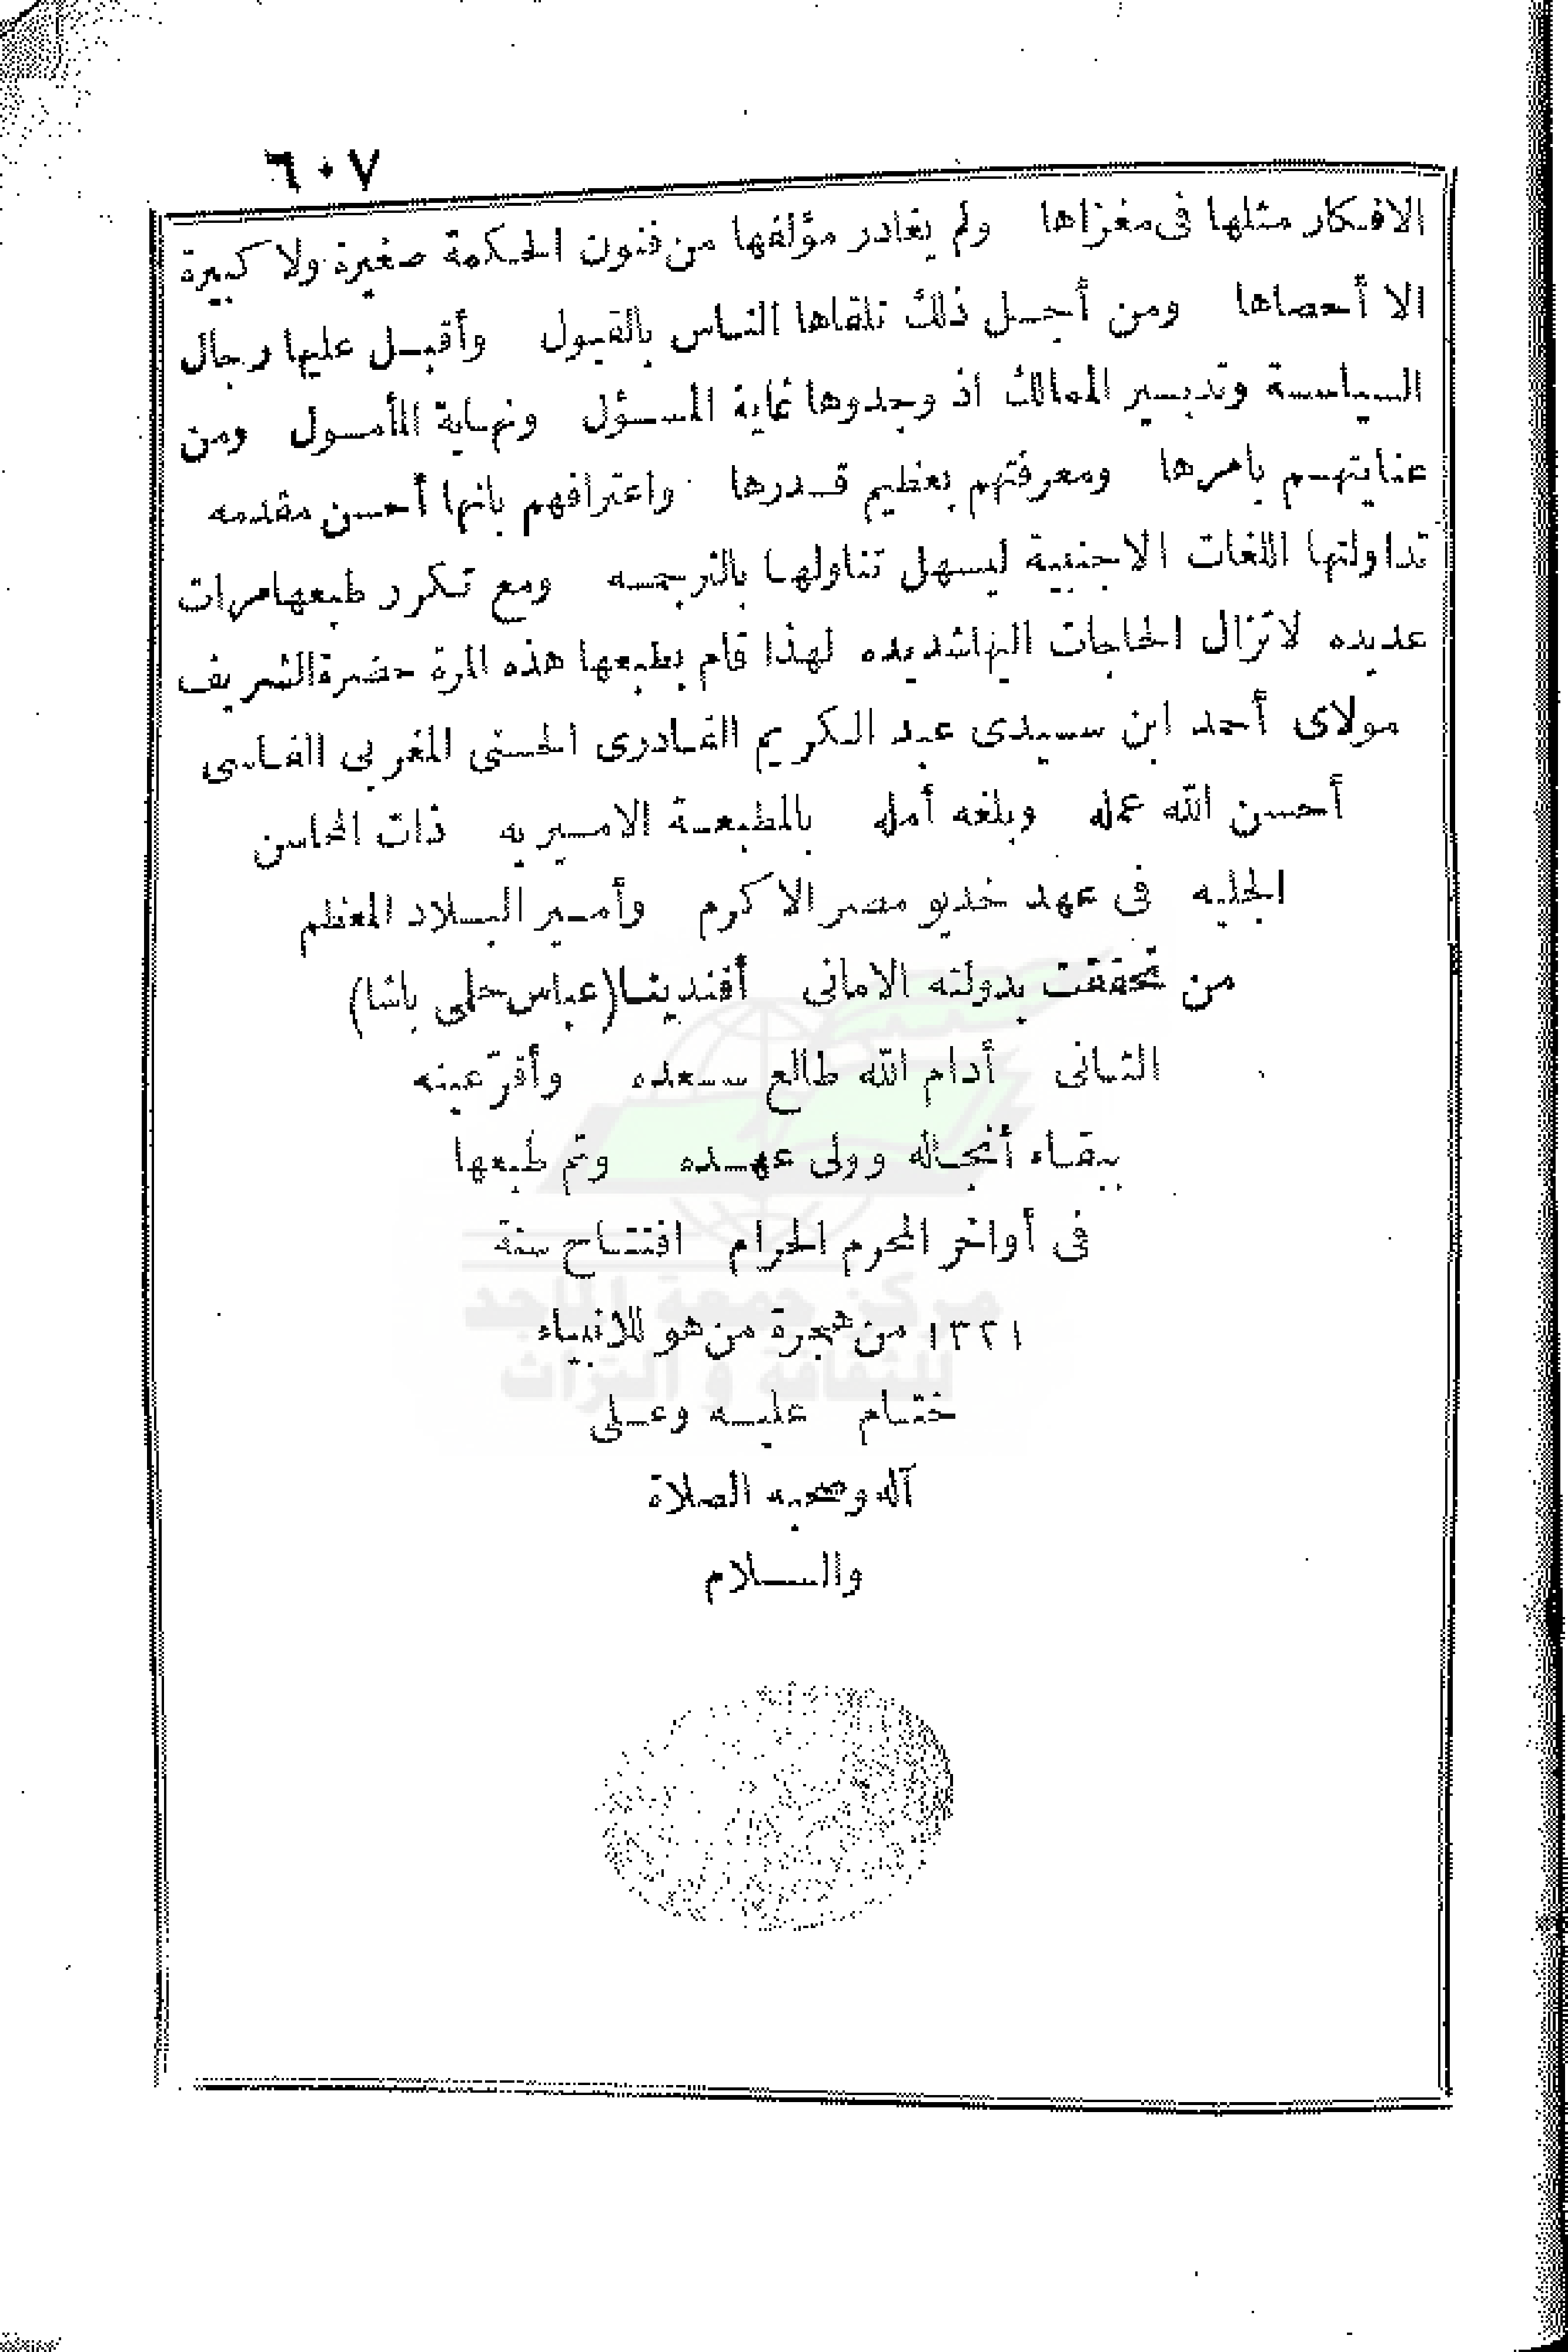 ٦٠٧
الافكار مثلها فى مغزاها ولم يغادر مؤلفها من فنون الحكمة صغيرة ولا كبيرة
الا أحصاها ومن أجل ذلك تلقاها الناس بالقبول وأقبل عليها رجال
السياسة وتدبير الممالك اذ وجدوها غاية المسؤل ونهاية المأمول ومن
عنايتهم بامرها ومعرفتهم بعظيم قدرها واعترافهم بانها أحسن مقدمه
تداولتها اللغات الاجنبية ليسهل تناولها بالترجمه ومع تكرر طبعها مرات
عديده لاتزال الحاجات اليها شديده لهذا قام بطبعها هذه المرة حضرة الشريف
مولاى أحمد ابن سيدى عبد الكريم القادرى الحسنى المغربى الفاسى
أحسن الله عمله وبلغه أمله بالمطبعة الاميريه ذات المحاسن
الجليه فى عهد خديو مصر الاكرم وأمير البلاد المعظم
من تحققت بدولته الامانى أفندينا (عباس حلمى باشا)
الثانى أدام الله طالع سعده وأقرّ عينه
ببقاء أنجاله وولى عهده وتم طبعها
فى أواخر المحرم الحرام افتتاح سنة
١٣٢١ من هجرة من هو للانبياء
ختام عليه وعلى
آله وصحبه الصلاة
والسلام
مركز جمعة الماجد
للثقافة و التراث